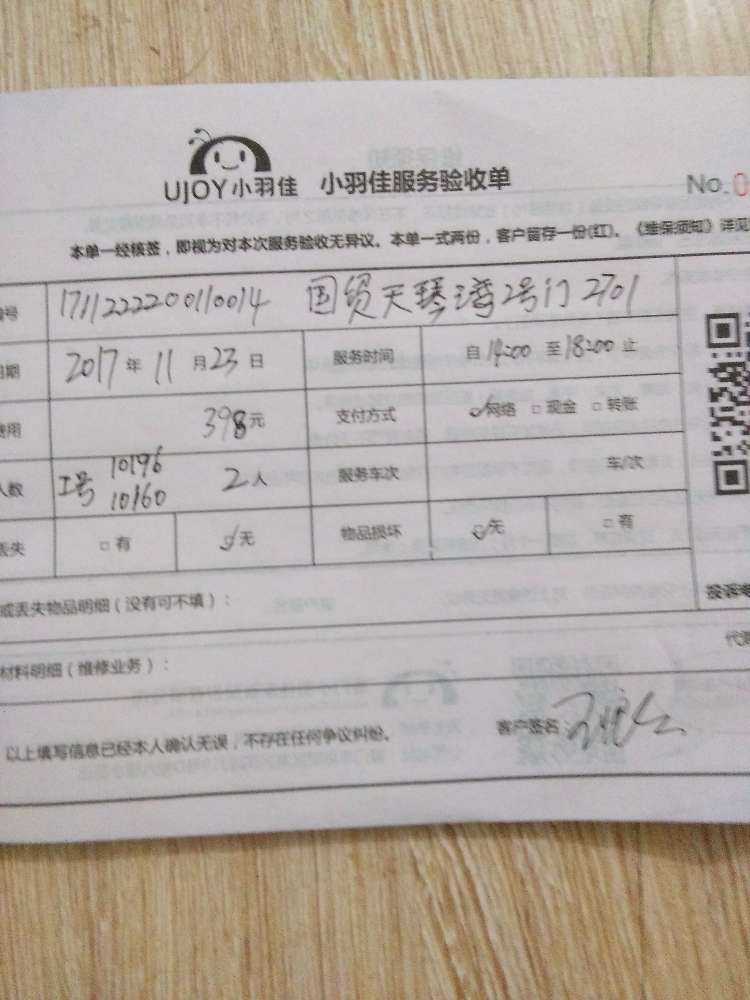 UJOY小羽佳 小羽佳服务验收单
No.0
本单一经核签，即视为对本次服务验收无异议。本单一式两份，客户留存一份(红)。《维保须知》详见
号 171122220010014 国贸天琴湾2号门2701
期 2017年11月23日 服务时间 自14:00至18:00止
费用 398元 支付方式 ☑网络 □现金 □转账
人数 工号 10196 10160 2人 服务车次 车/次
丢失 □有 ☑无 物品损坏 ☑无 □有
或丢失物品明细（没有可不填）：
投诉
材料明细（维修业务）：
以上填写信息已经本人确认无误，不存在任何争议纠纷。 客户签名：